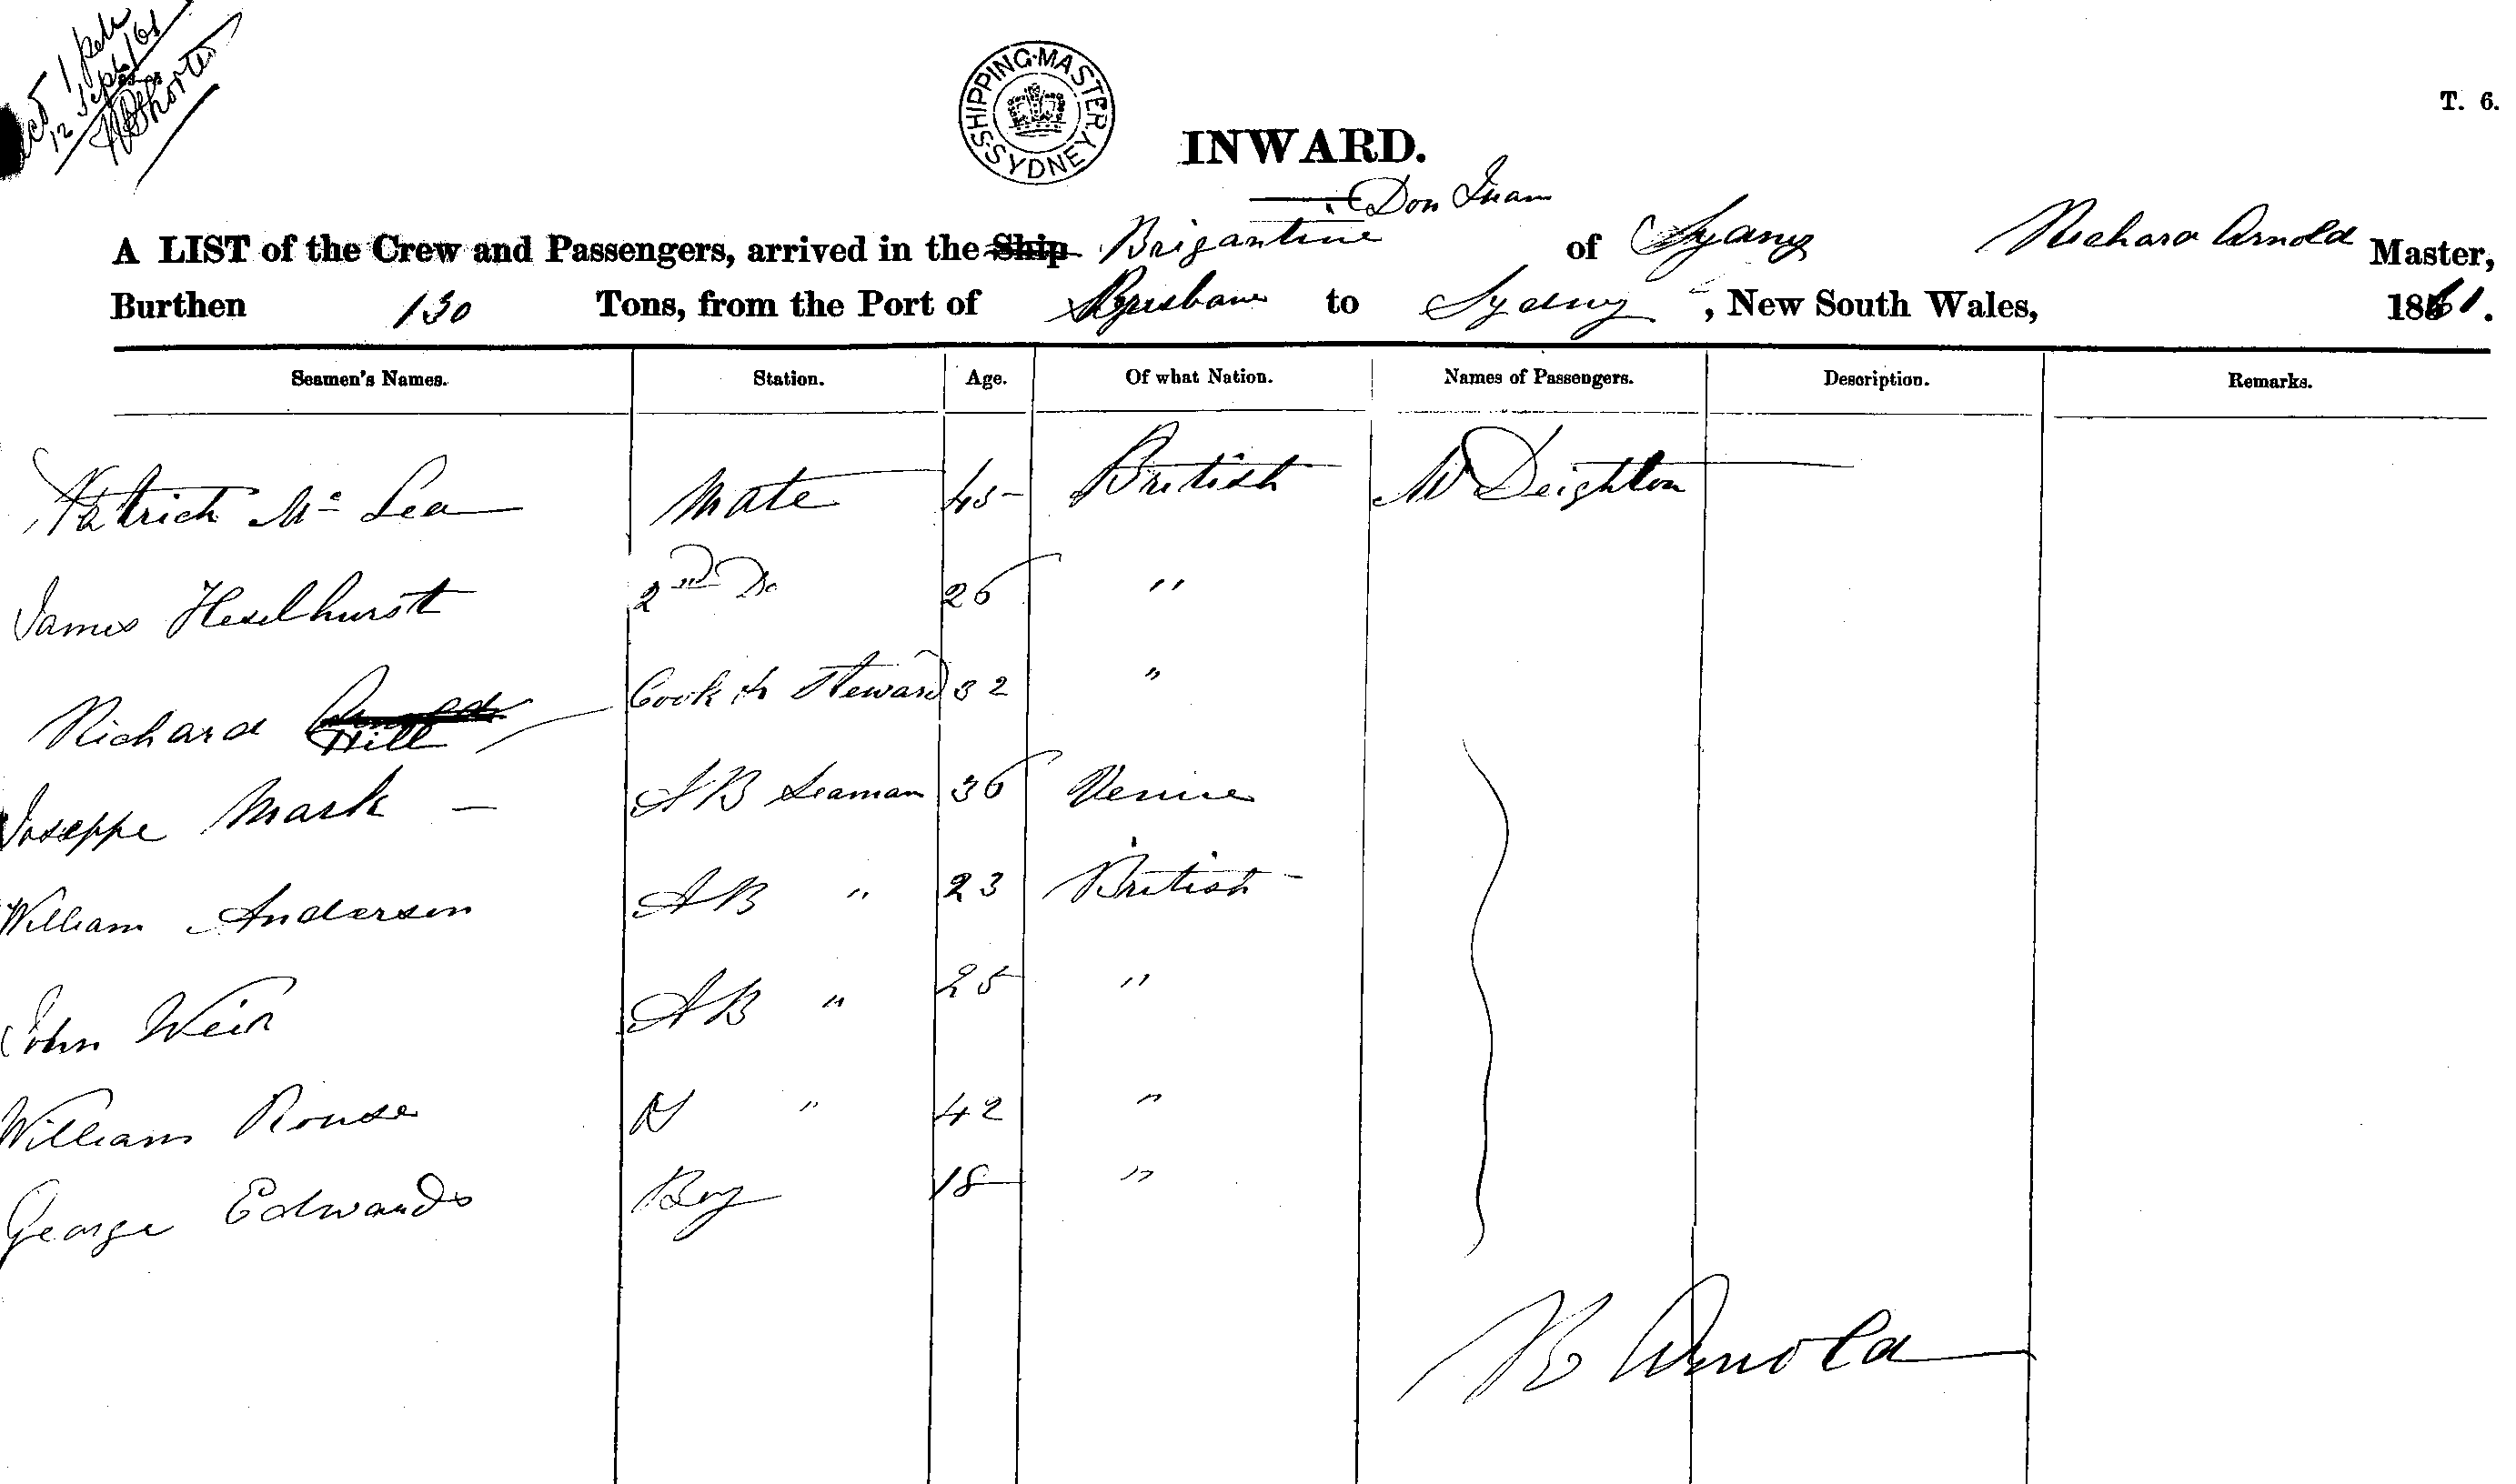 12 Sept/61
SHIPPING MASTER SYDNEY
T. 6.
INWARD.
Don Juan
A LIST of the Crew and Passengers, arrived in the Ship Brigantine of Sydney Richard Arnold Master,
Burthen 130 Tons, from the Port of Brisbane to Sydney, New South Wales, 1861.
Seamen's Names. Station. Age. Of what Nation. Names of Passengers. Description. Remarks.
Patrick Mc Lea Mate 45 British Mr Deighton
James Heselhurst 2nd Do 26 "
Richard Arnold Hill Cook & Steward 32 "
Joseppe Mark - AB Seaman 36 Venice
William Anderson AB " 23 British
John Weir AB " 25 "
William Rouse " 42 "
George Edwards Boy 18 "
R Arnold